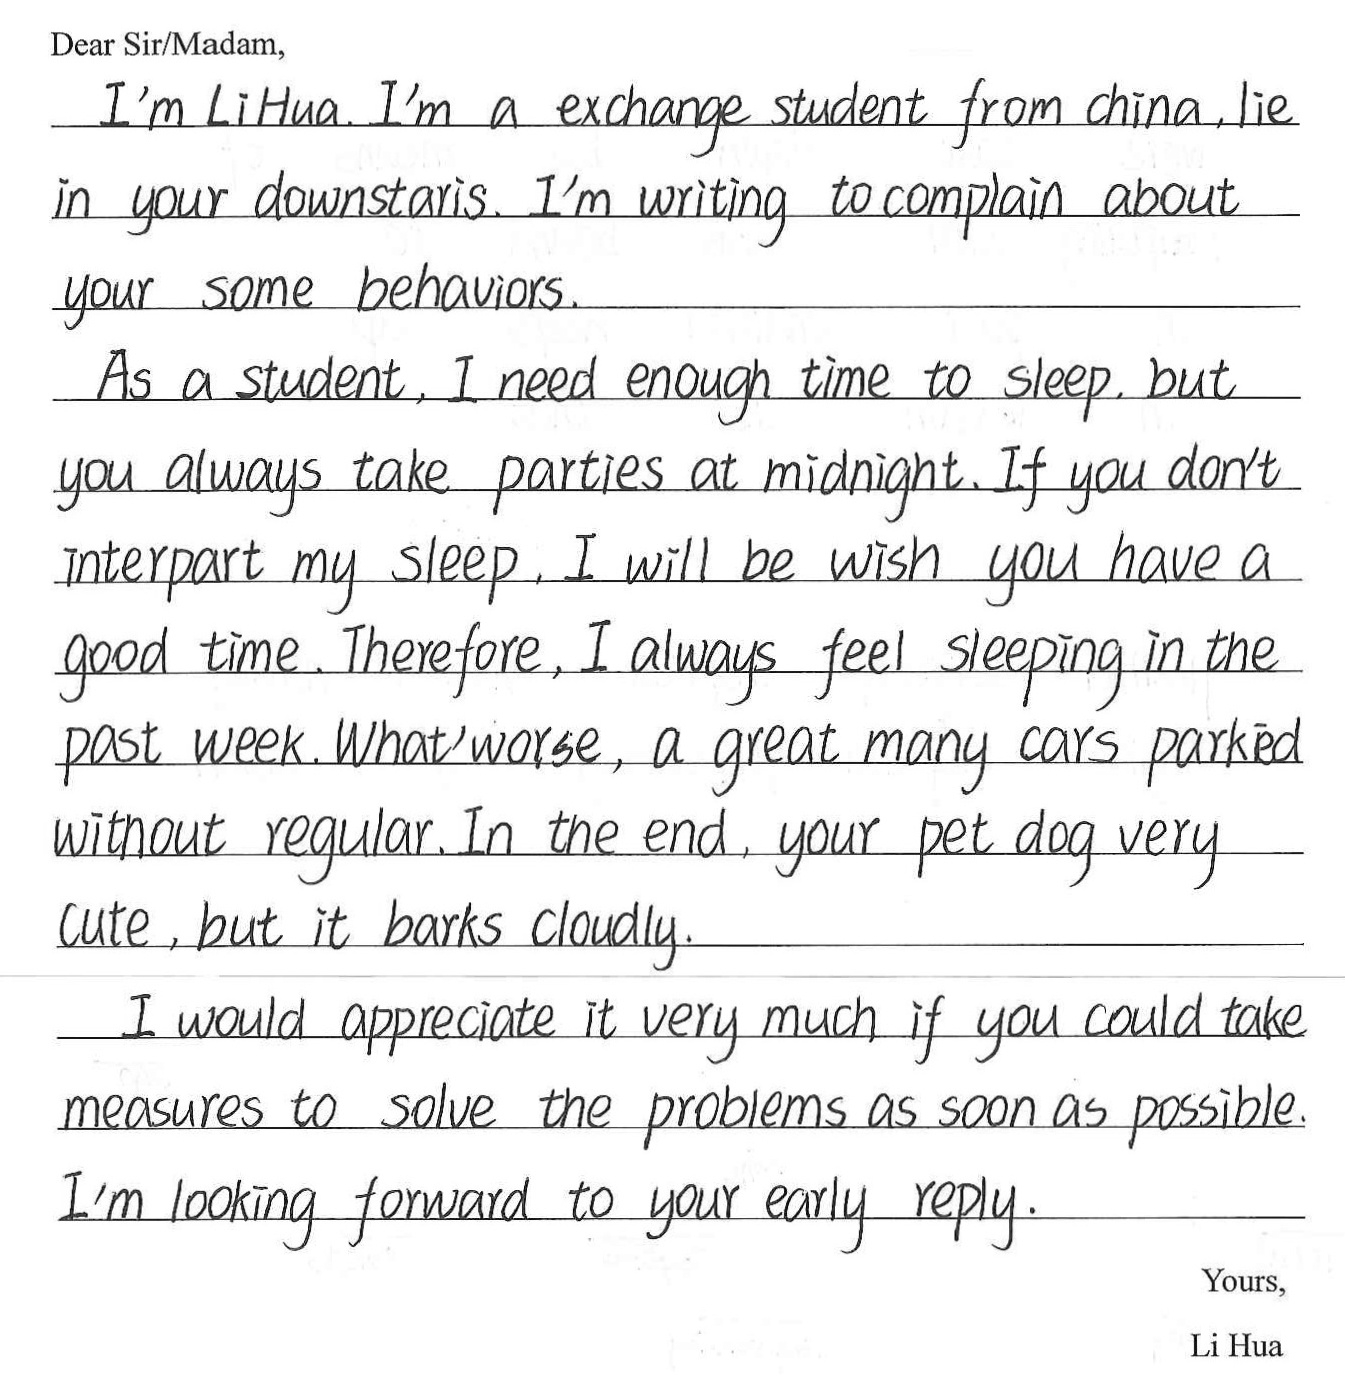 Dear Sir/Madam,
I'm Li Hua. I'm a exchange student from china, lie
in your downstaris. I'm writing to complain about
your some behaviors.
As a student, I need enough time to sleep. but
you always take parties at midnight. If you don't
interpart my sleep, I will be wish you have a
good time. Therefore, I always feel sleeping in the
past week. What'worse, a great many cars parked
without regular. In the end, your pet dog very
cute, but it barks cloudly.
I would appreciate it very much if you could take
measures to solve the problems as soon as possible.
I'm looking forward to your early reply.
Yours,
Li Hua